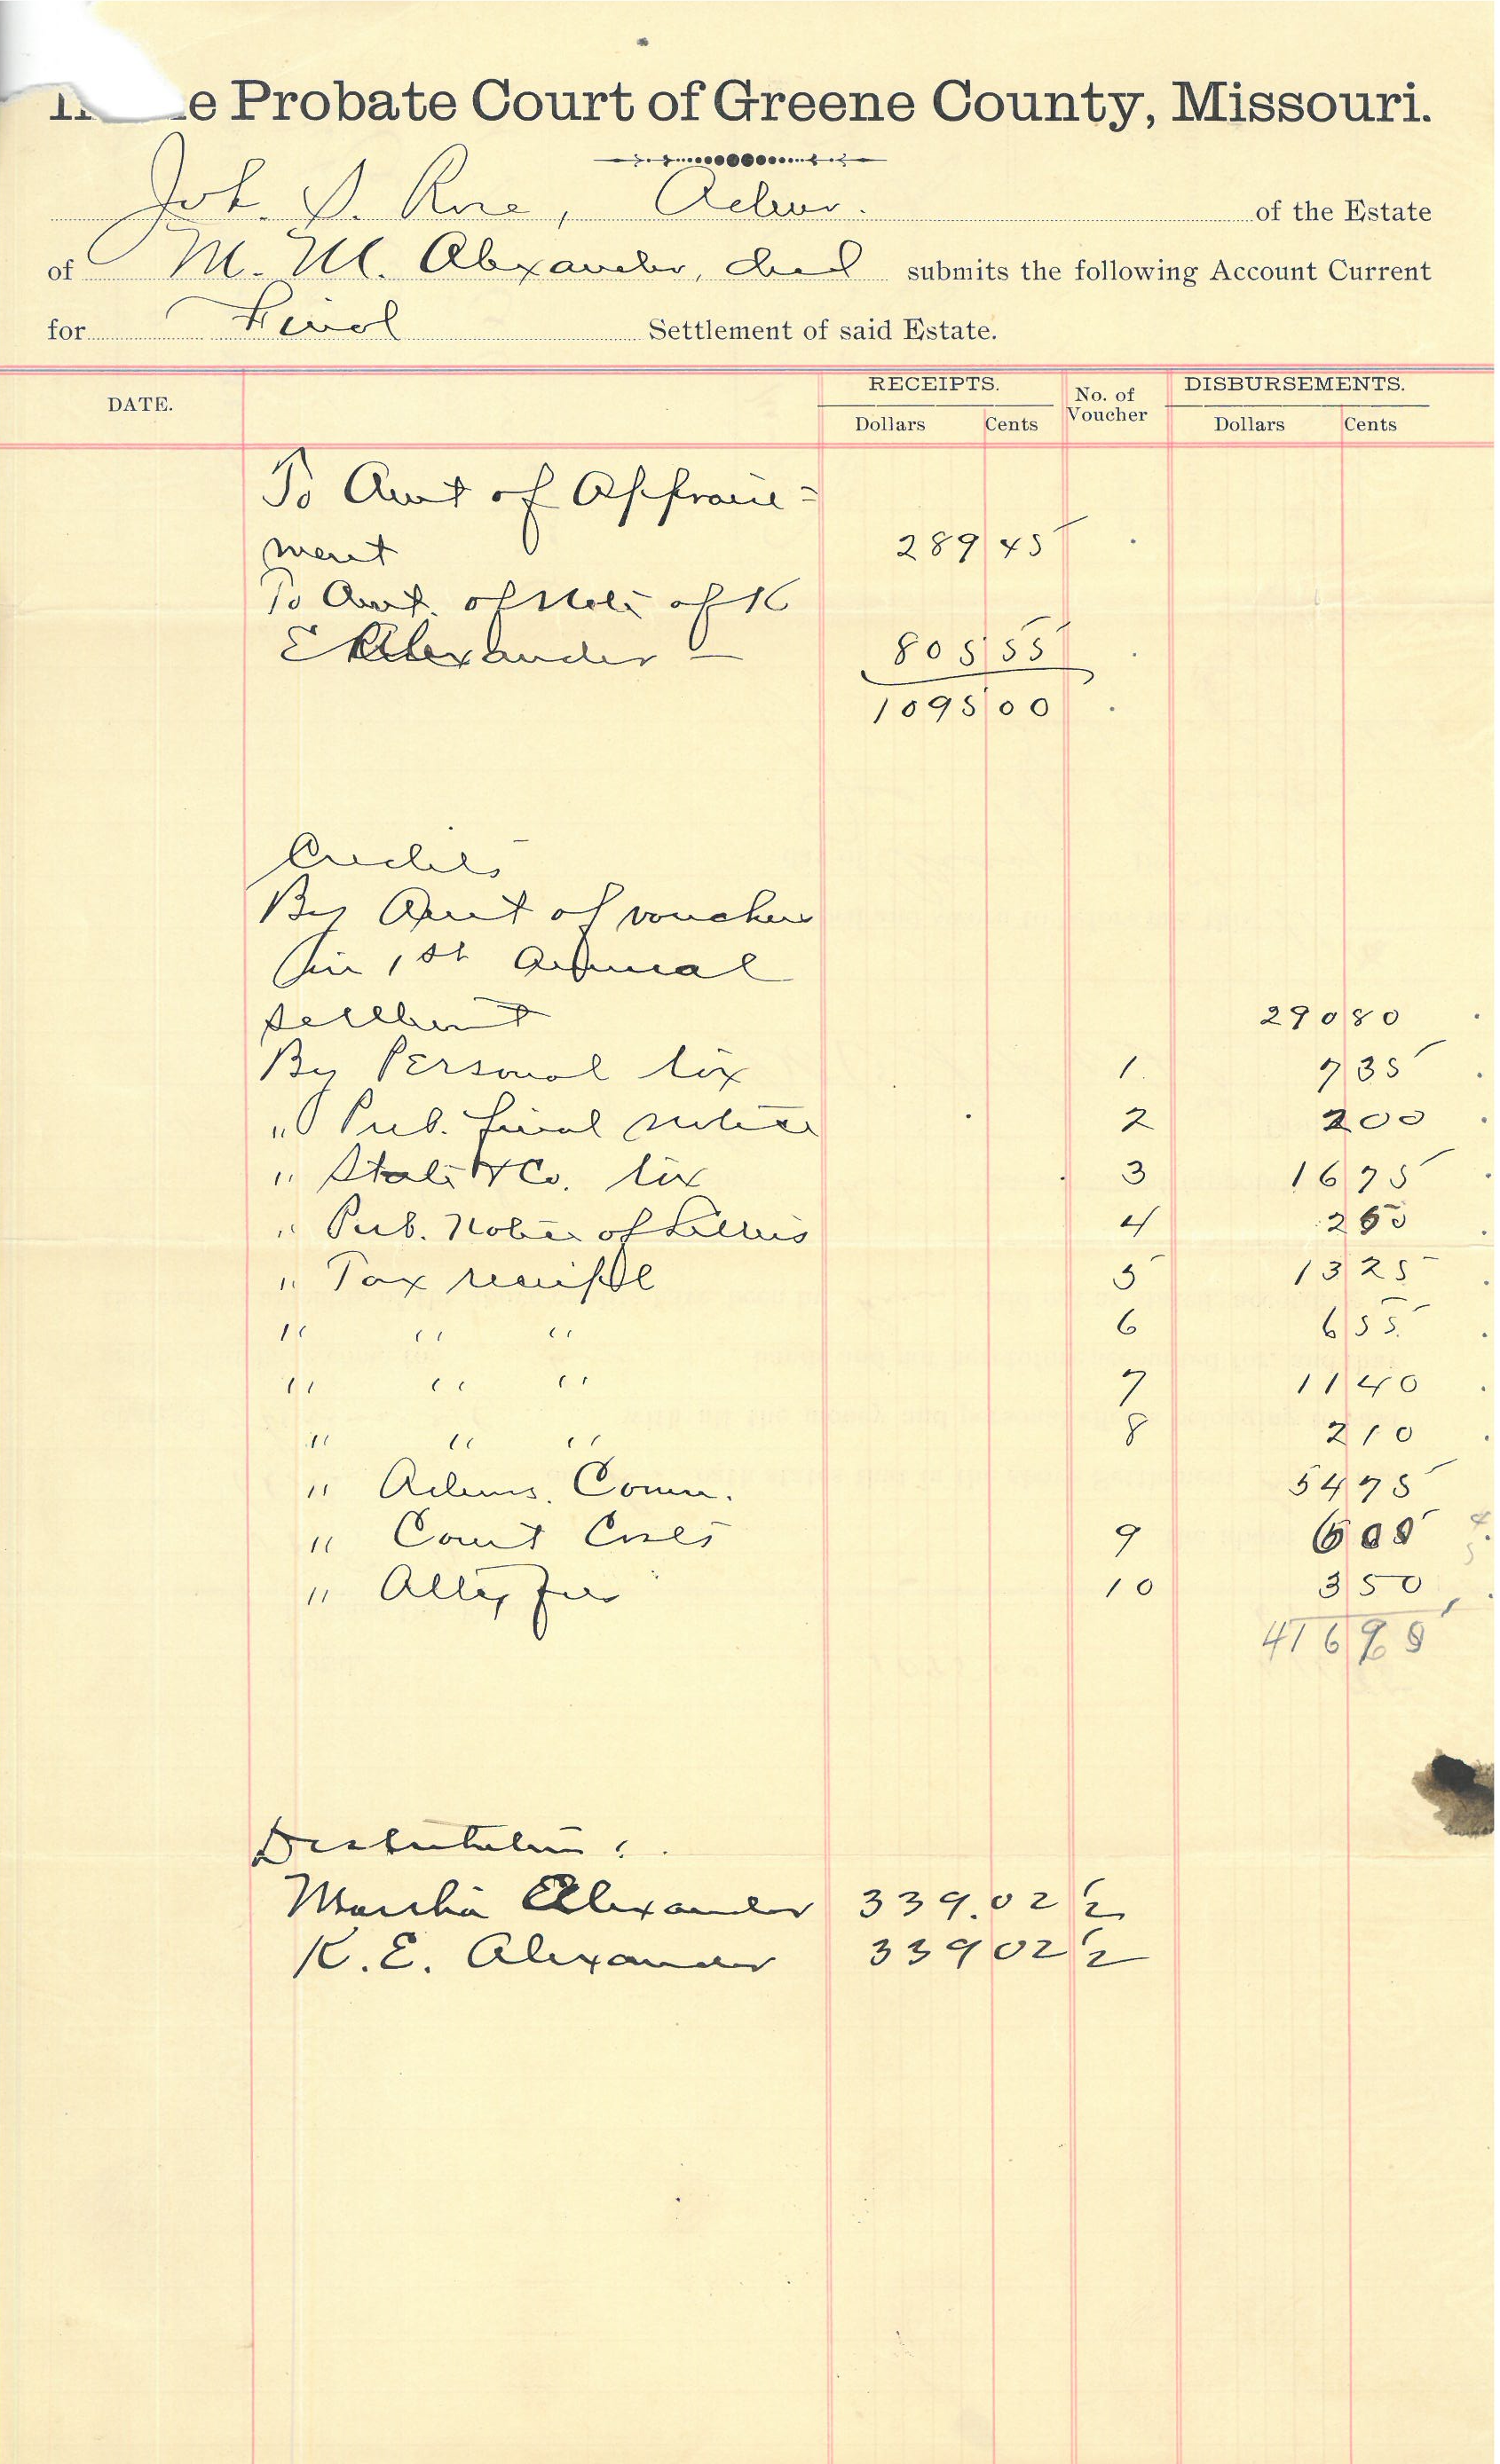 e Probate Court of Greene County, Missouri.
Joh. S. Rose, Admr. of the Estate
of M. M. Alexander, decd submits the following Account Current
for Final Settlement of said Estate.
DATE. RECEIPTS. No. of Voucher DISBURSEMENTS.
Dollars Cents Dollars Cents
To Amt of Appraise=
ment 289 45
To Amt. of Note of K
E Alexander — 805 55
1095 00
Credits
By Amt of vouchers
in 1st Annual
settlement 290 80
By Personal tax 1 7 35
" Pub. final notice 2 2 00
" State & Co. tax 3 16 75
" Pub. Notice of Letters 4 2 50
" Tax receipt 5 13 25
" " " 6 6 55
" " " 7 11 40
" " " 8 2 10
" Adms. Comm. 54 75
" Court Costs 9
" Atty fee 10 3 50
416
Distribution:
Martha Alexander 339.02 1/2
K. E. Alexander 339 02 1/2